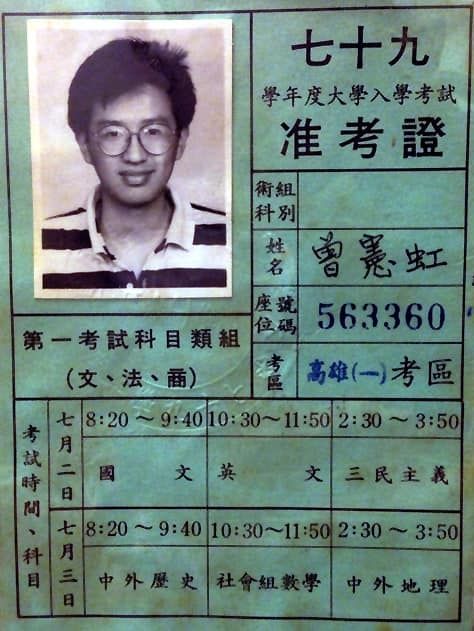 七十九
學年度大學入學考試
准考證
術組科別
姓名 曾憲虹
座位號碼 563360
考區 高雄(一)考區
第一考試科目類組
(文、法、商)
考試時間、科目
七月二日
8:20～9:40 10:30～11:50 2:30～3:50
國文 英文 三民主義
七月三日
8:20～9:40 10:30～11:50 2:30～3:50
中外歷史 社會組數學 中外地理